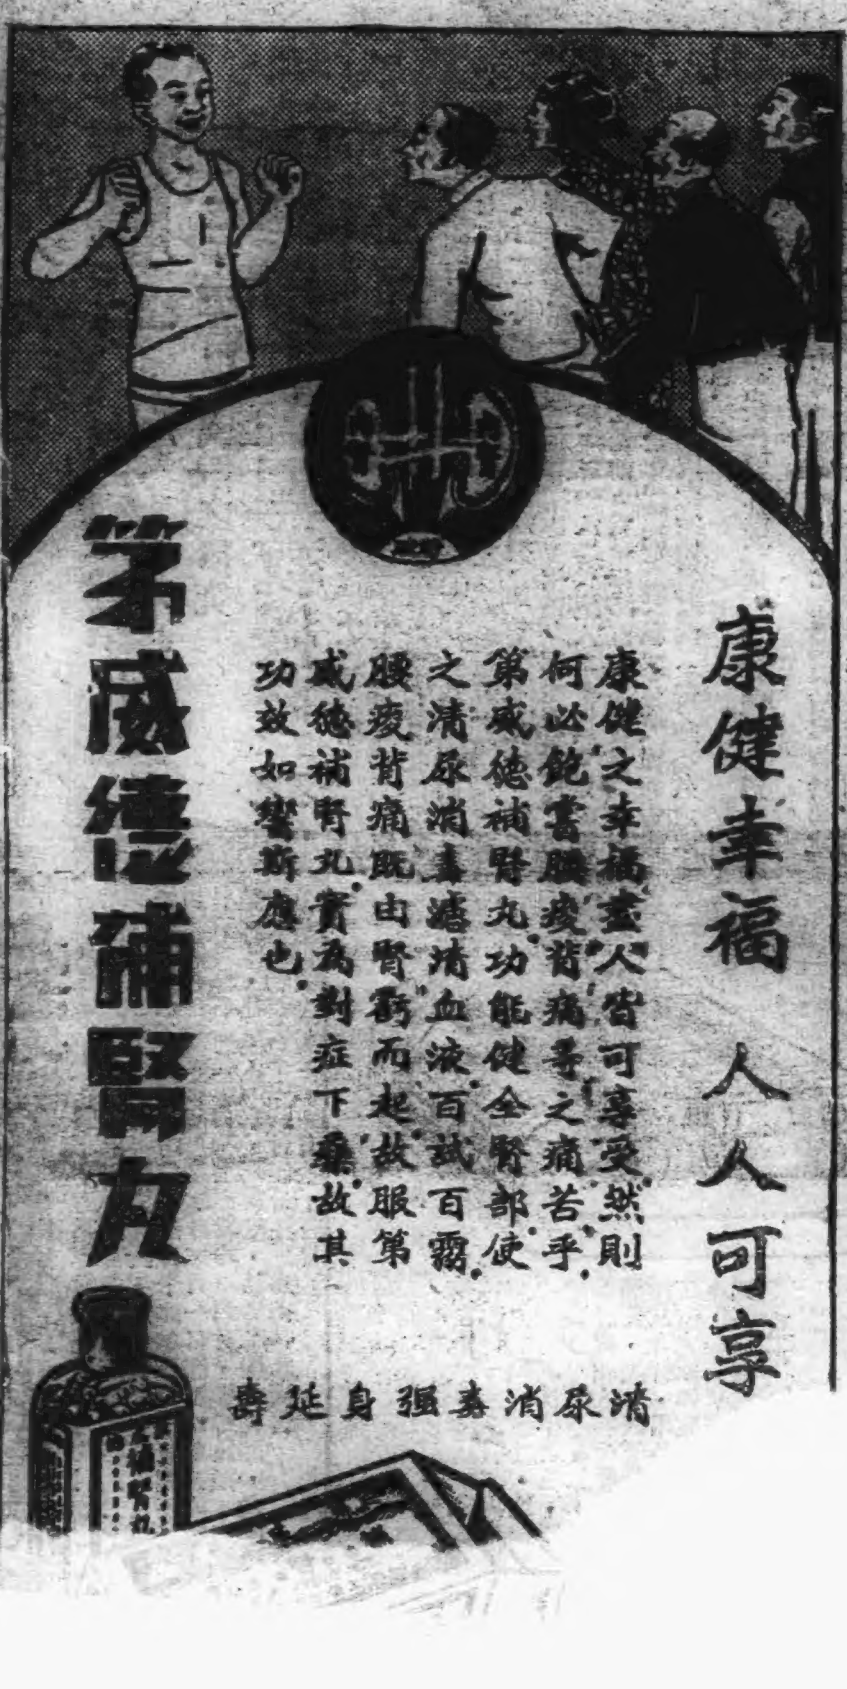 康健幸福 人人可享
康健之幸福盡人皆可享受然則
何必飽嘗腰痠背痛等之痛苦乎
第威德補腎丸功能健全腎部使
之清尿消毒濾清血液百試百靈
腰痠背痛既由腎虧而起故服第
威德補腎丸實為對症下藥故其
功效如響斯應也
第威德補腎丸
清尿消毒强身延壽
補腎丸